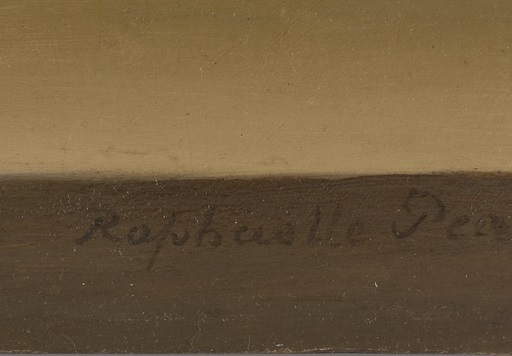 Raphaelle Pea